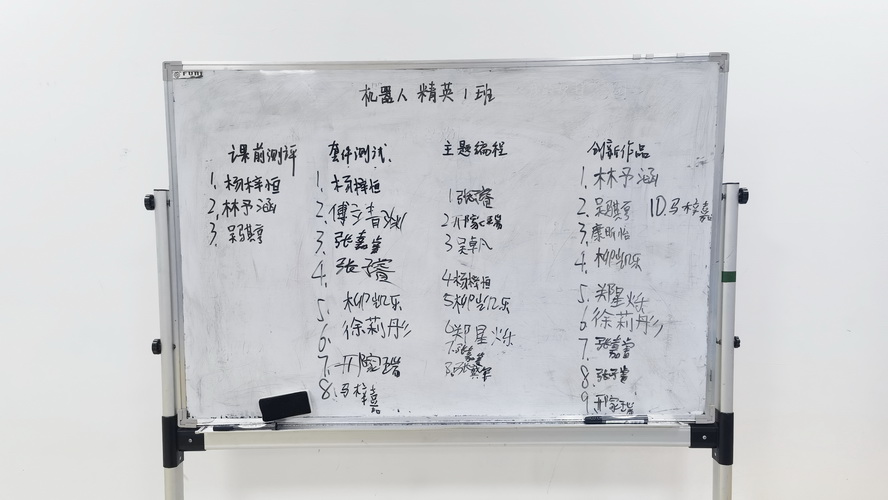 机器人 精英1班
课前测评
1. 杨梓恒
2. 林予涵
3. 吴骐亨
套件测试
1. 杨梓恒
2. 傅立青
3. 张嘉
4. 张子睿
5. 柳凯乐
6. 徐莉彤
7. 邢家瑞
8. 马梓嘉
主题编程
1 张子睿
2 邢家瑞
3 吴卓凡
4 杨梓恒
5 柳凯乐
6 郑星烁
7. 张嘉
8. 张
创新作品
1. 林予涵
2. 吴骐亨
3. 康昕怡
4. 柳凯乐
5. 郑星烁
6 徐莉彤
7. 张嘉
8. 张子睿
9 邢家瑞
10. 马梓嘉